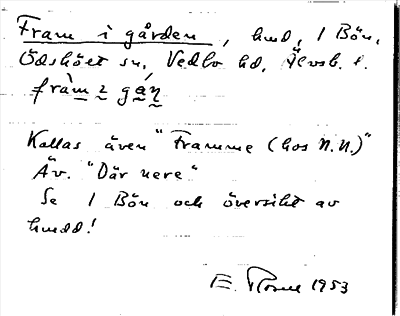 Fram i gården, hmd, 1 Bön,
Ödsköet sn, Vedbo hd, Älvsb. l.
fràm i gáṇ
Kallas även "Framme (hos N.N.)"
Äv. "Där nere"
Se 1 Bön och översikt av
hmdd!
E. 1953